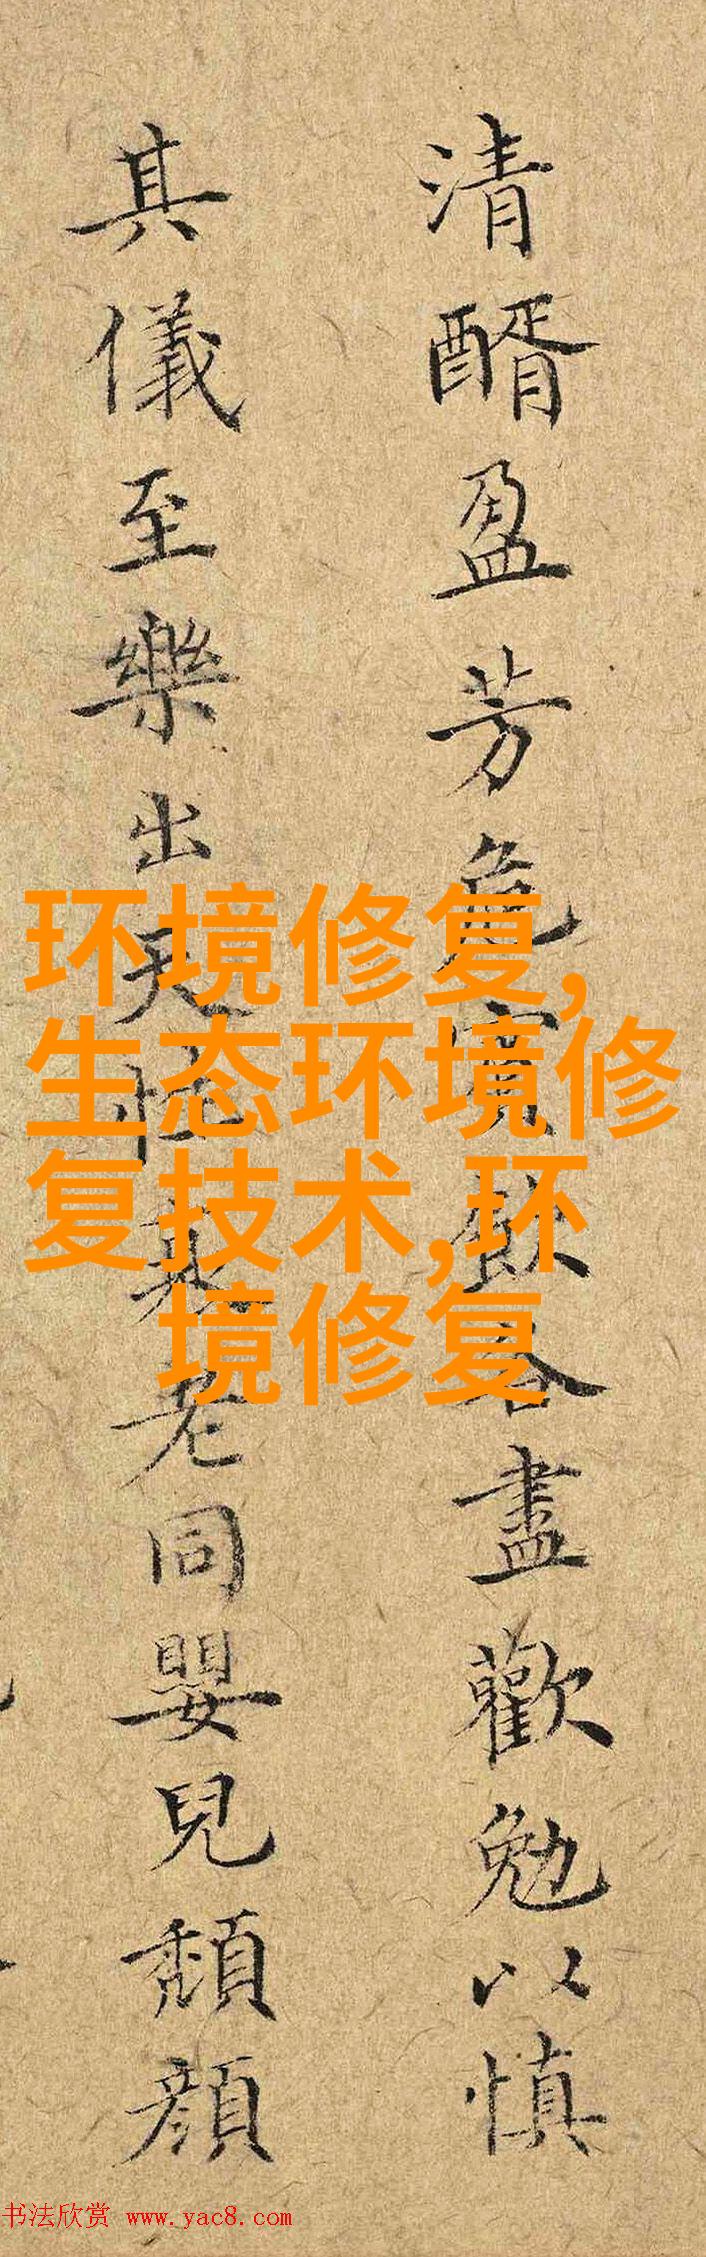 清醑盈芳危賓飲各盡歡勉以慎
其儀至樂出天性熟老同嬰兒頹顏
环境修复,
生态环境修
复技术,环
境修复
书法欣赏 www.yac8.com